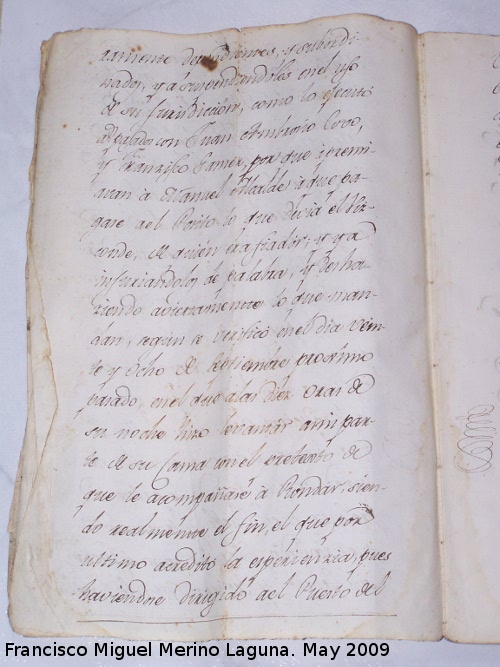 tamente dependientes, y subordi-
nados, y á suspendiendolos en el uso
de su Jurisdiccion, como lo ejecutó
con Juan Ambrosio Covo,
y Franzisco Gamez, porque apremi-
avan á Manuel Alcalde á que pa-
gase ael Posito lo que devia el Viz-
conde, de quien era fiador; y ya
injuriandolos de palabra, y desha-
ziendo aviertamente lo que man-
dan, segun se verificó en el dia vein-
te y ocho de septiembre proximo
pasado, en el que alas diez oras de
su noche hizo levantar a mi par-
te de su Cama con el pretexto de
que le acompañase á Rondar, sien-
do realmente el fin, el que por
ultimo acreditó la esperienzia, pues
haviendose dirigido ael Puesto del
Francisco Miguel Merino Laguna. May 2009